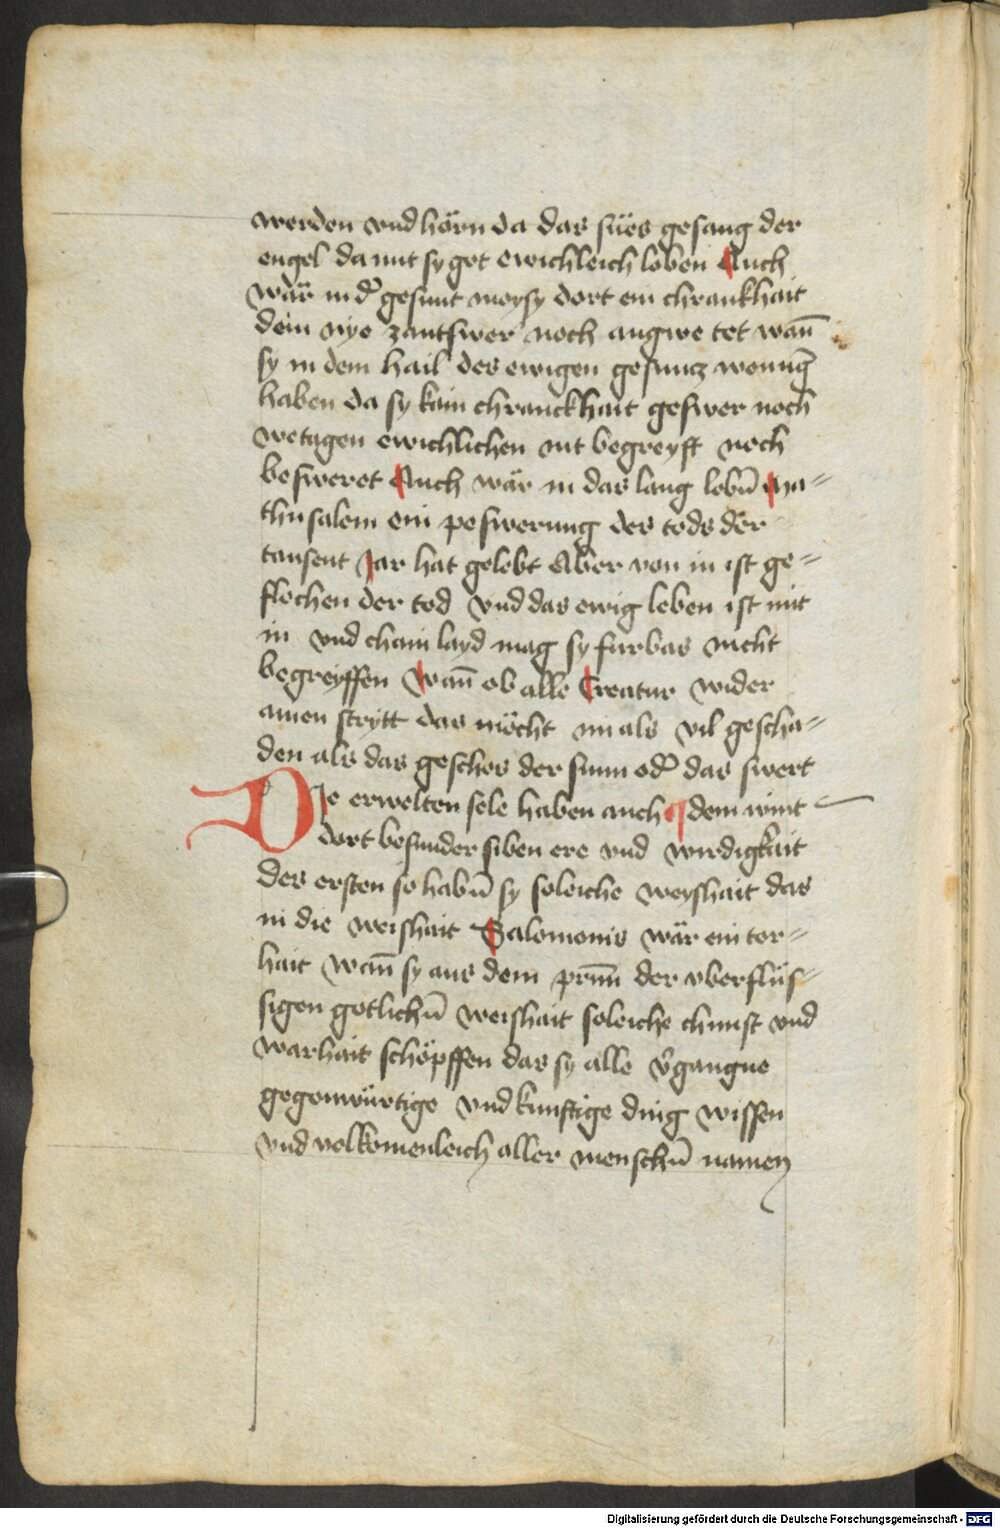 werden vnd hörn da das sües gesang der
engel da mit sy got ewichleich loben Auch
wär in d͛ gesunt moysy dort ein chrankhait
dem nye zantswer noch augwe tet wan̄
sy in dem hail des ewigen gesuntz wonūg
haben da sy kain chranckhait geswer noch
wetagen ewichlichen nit begreyft noch
besweret Auch wär in das lang lebn̄ Ma⸗
thusalem ein peswerung des tods der
tausent Jar hat gelebt Aber von in ist ge⸗
flochen der tod vnd das ewig leben ist mit
in vnd chain layd mag sy furbas nicht
begreyffen Wan̄ ob alle Creatur wider
ainen strytt das möcht im als vil gescha⸗
den als das geschos der sunn od͛ das swert
Die erwelten sele haben auch ¶ dem wint
dort besunder siben ere vnd wirdigkait
Des ersten so habn̄ sy soleiche weyshait das
in die weishait Salomonis wär ein tor⸗
hait wan̄ sy aus dem prun̄ der vberflüs⸗
sigen gotlichn̄ weishait soleiche chunst vnd
warhait schöpffen das sy alle v͛gangne
gegenwürtige vnd kunftige ding wissen
vnd volkomenleich aller menschn̄ namen
Digitalisierung gefördert durch die Deutsche Forschungsgemeinschaft - DFG